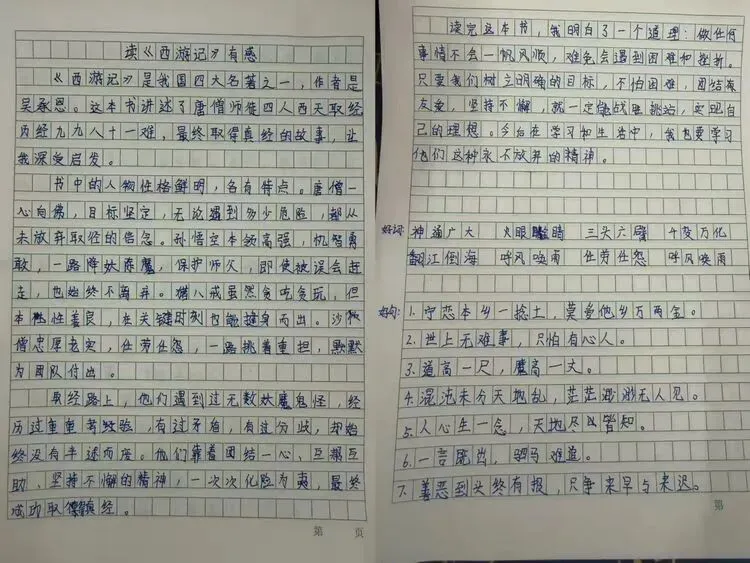 读《西游记》有感
《西游记》是我国四大名著之一，作者是
吴承恩。这本书讲述了唐僧师徒四人西天取经
历经九九八十一难，最终取得真经的故事，让
我深受启发。
书中的人物性格鲜明，各有特点。唐僧一
心向佛，目标坚定，无论遇到多少危险，都从
未放弃取经的信念。孙悟空本领高强，机智勇
敢，一路降妖除魔，保护师父，即使被误会赶
走，也始终不离弃。猪八戒虽然贪吃贪玩，但
本性善良，在关键时刻也能挺身而出。沙
僧忠厚老实，任劳任怨，一路挑着重担，默默
为团队付出。
取经路上，他们遇到过无数妖魔鬼怪，经
历过重重考验，有过矛盾，有过分歧，却始
终没有半途而废。他们靠着团结一心、互相互
助、坚持不懈的精神，一次次化险为夷，最终
成功取得真经。
第 页
读完这本书，我明白了一个道理：做任何
事情不会一帆风顺，难免会遇到困难和挫折。
只要我们树立明确的目标，不怕困难，团结
友爱，坚持不懈，就一定能战胜挑战，实现自
己的理想。今后在学习和生活中，我也要学习
他们这种永不放弃的精神。
好词：神通广大 火眼金睛 三头六臂 千变万化
翻江倒海 呼风唤雨 任劳任怨 呼风唤雨
好句：1. 宁恋本乡一捻土，莫爱他乡万两金。
2. 世上无难事，只怕有心人。
3. 道高一尺，魔高一丈。
4. 混沌未分天地乱，茫茫渺渺无人见。
5. 人心生一念，天地尽皆知。
6. 一言既出，驷马难追。
7. 善恶到头终有报，只争来早与来迟。
第